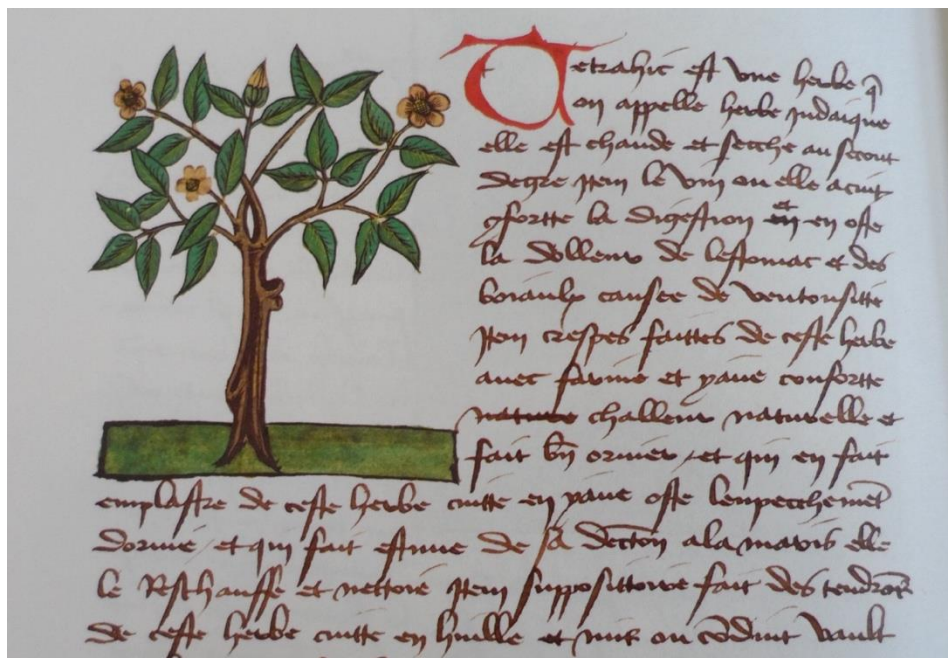 Tetrahic est vne herbe q̄
on appelle herbe judaique
elle est chaude et seche au second
degre jtem le vin ou elle a cuit
9fortte la digestion et en oste
la dolleur de lestomac et des
boiaulx causee de ventousitte
jtem crespes faittes de ceste herbe
auec farine et yaue confortte
nature challeur naturelle et
fait bn̄ oriner et qui en fait
emplastre de ceste herbe cuitte en yaue oste lenpecchemēt
dorine et qui fait estuue de sa decton̄ a la maris elle
le Reschauffe et nettoie jtem supposittoire fait des tendrons
de ceste herbe cuitte en huille et mis ou cōduit vault